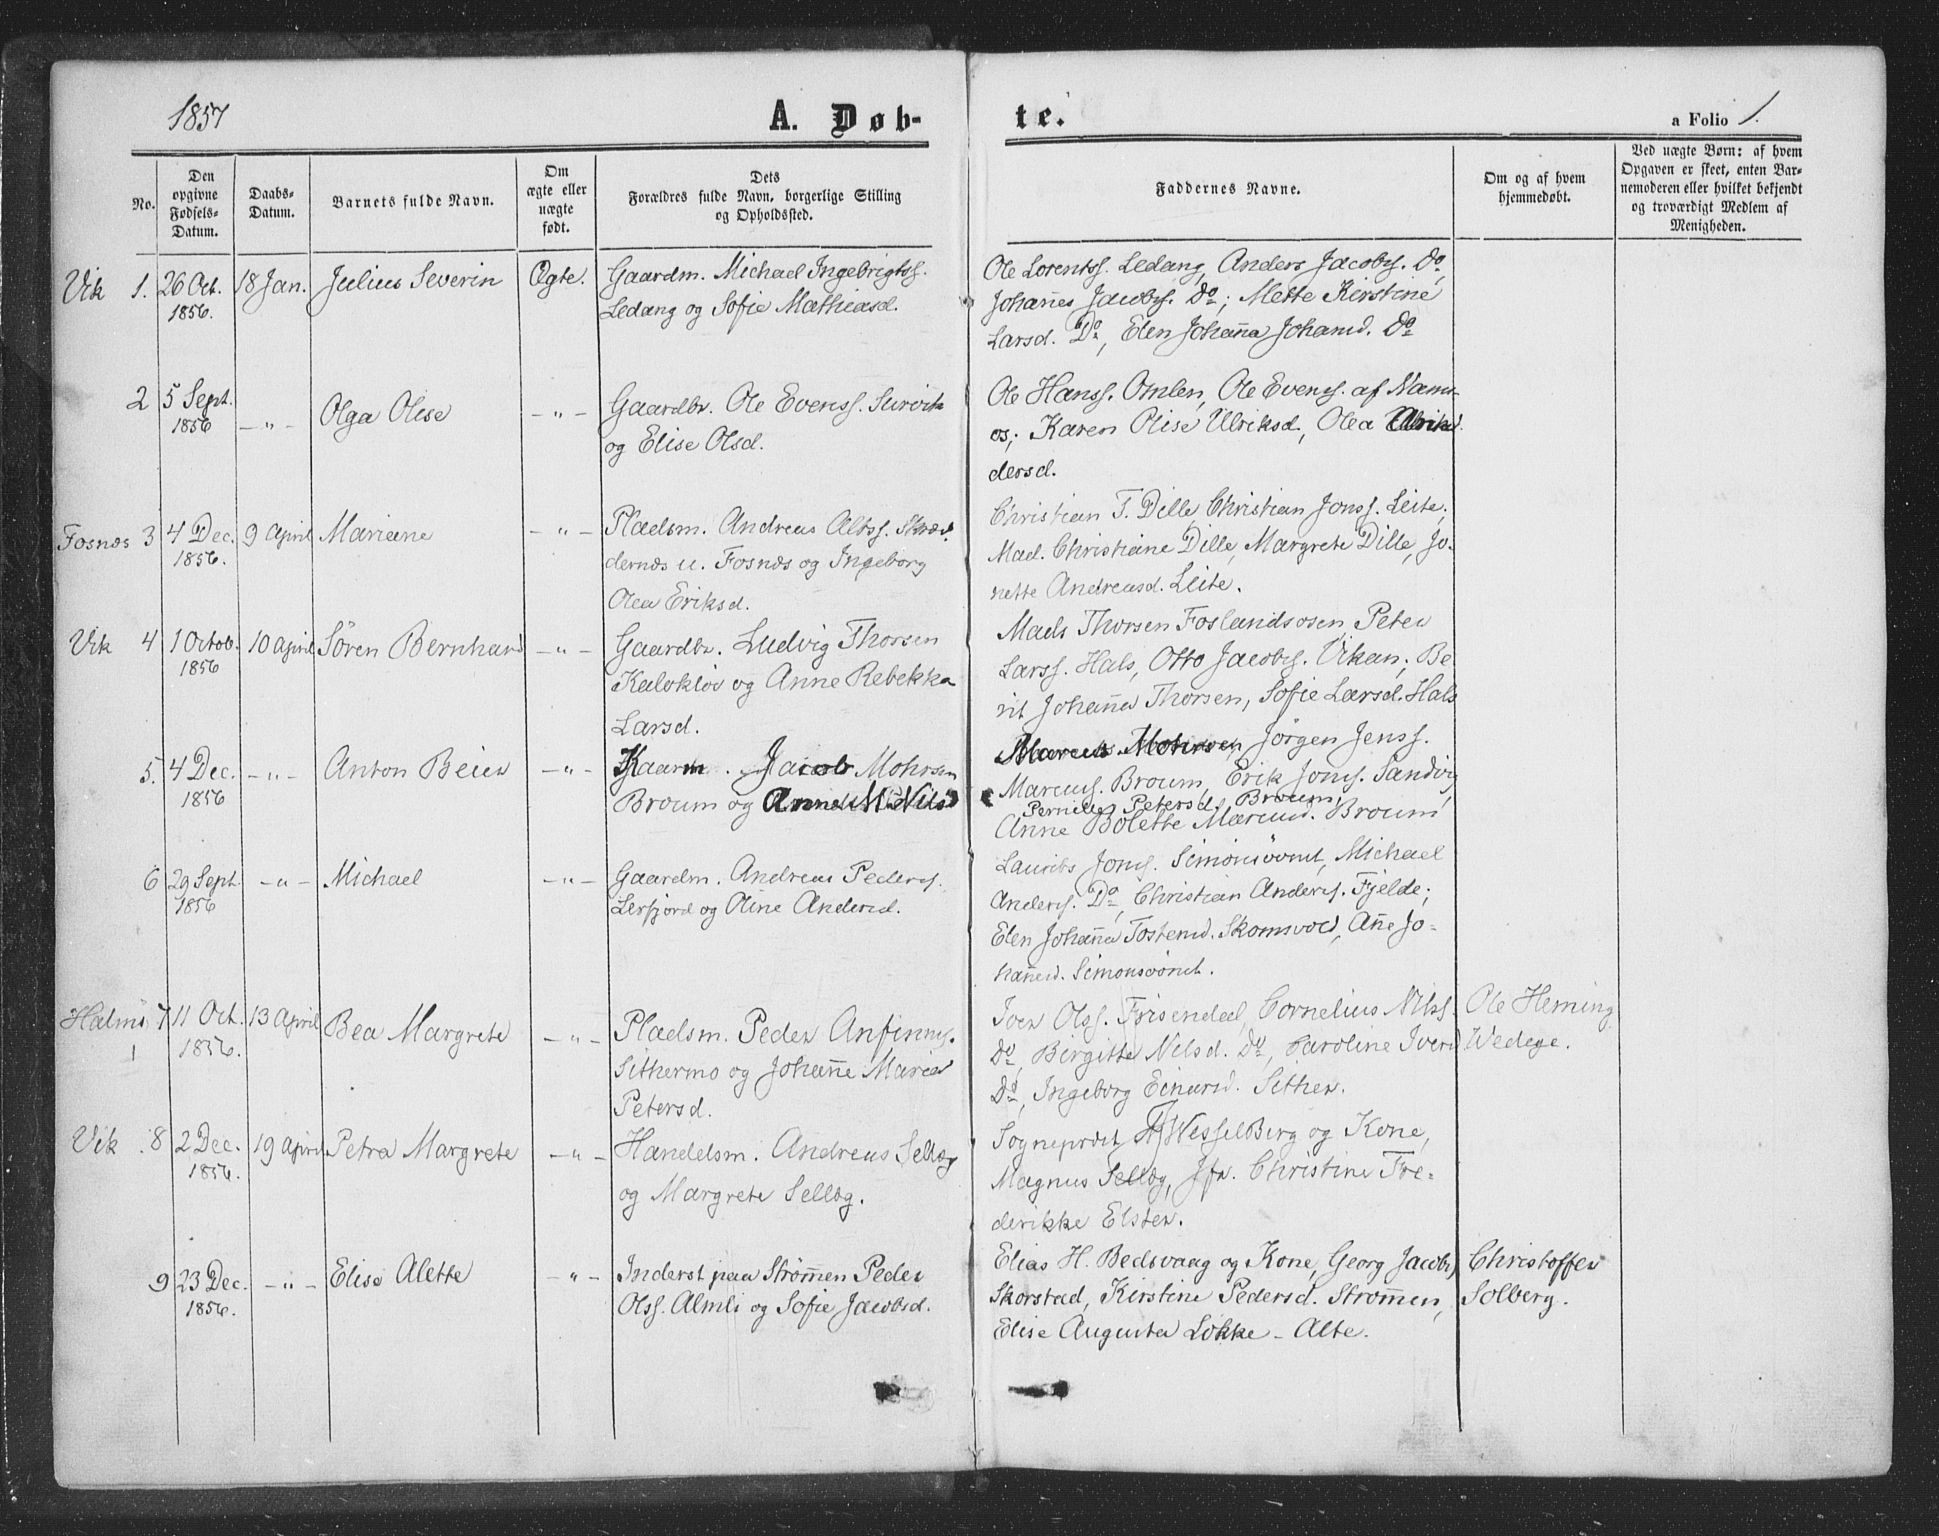 1857
A. Døb-
te.
a Folio 1.
No.
Den opgivne Fødsels-Datum.
Daabs-Datum.
Barnets fulde Navn.
Om ægte eller uægte født.
Dets Forældres fulde Navn, borgerlige Stilling og Opholdssted.
Faddernes Navne.
Om og af hvem hjemmedøbt.
Ved uægte Børn: af hvem Opgaven er skeet, enten Barnemoderen eller hvilket bekjendt og troværdigt Medlem af Menigheden.
Vik 1. 26 Oct. 1856. 18 Jan. Julius Severin Ægte.
Gaardm. Michael Ingebrigtss.
Ledang og Sofie Mathiasd.
Ole Lorentss. Ledang, Anders Jacobs. Do,
Johañes Jacobs. Do; Mette Kerstine
Larsd. Do, Elen Johaña Johand. Do
2 5 Sept. 1856 -"- Olga Olise -"-
Gaardbr. Ole Evenss. Survik
og Elise Olsd.
Ole Hanss. Omlen, Ole Evens. af Nams-
os; Karen Olise Ulriksd., Olea
dersd.
Fosnæs 3 4 Dec. 1856. 9 April Mariane -"-
Pladsm. Andreas Albss.
dernæs u. Fosnæs og Ingeborg
Olea Eriksd.
Christian F. Dille Christian Jonss. Leite,
Mad. Christiane Dille, Margrete Dille, Jo-
nette Andreasd. Leite.
Vik 4 1 Octob. 1856 10 April Sören Bernhard -"-
Gaardbr. Ludvig Thorsen
Kalvkløv og Anne Rebekka
Larsd.
Mads Thorsen Foslandsosen, Peter
Larss. Hals, Otto Jacobs. Vikan; Be
rit Johaña Thorsen, Sofie Larsd. Hals
5. 4 Dec. 1856 -"- Anton Beier -"-
Gaardm. Jacob Mohrsen
Broum og Anne M. Nilsd
Jörgen Jenss.
Marcuss. Broum, Erik Jons. Sandvig,
Pernille Petersd. Broum,
Anne Bolette Marcusd. Broum
6 29 Sept. 1856 -"- Michael -"-
Gaardm. Andreas Peders.
Lerfjord og Oline Andersd.
Laurits Jons. Simonsövnt, Michael
Anders. Do, Christian Anders. Fjelde;
Elen Johaña Tostensd. Skomsvold, Añe Jo-
hañesd. Simonsövnt.
Halmö 7 11 Oct. 1856. 13 April Bea Margrete -"-
1
Pladsm. Peder Anfinns.
Sithermo og Johañe Maria
Petersd.
Iver Olss. Frisendal, Cornelius Nilss.
Do, Birgitte Nilsd. Do, Karoline Iversd
Do, Ingeborg Einarsd. Sither.
Ole Heming
Wedege.
Vik 8 2 Dec. 1856. 19 April Petra Margrete -"-
Handelsm. Andreas Sellæg
og Margrete Sellæg.
Sogneprest Wesselberg og Kone,
Magnus Sellæg, Jfr. Christine Fre-
derikke Elster.
9 23 Dec. 1856. -"- Elise Alette -"-
Inderst paa Strömen Peder
Olss. Almli og Sofie Jacobsd.
Elias H. Bedsvaag og Kone, Georg Jacobs
Skorstad, Kirstine Pedersd. Strömen,
Elise Augusta Lokke - Alte.
Christoffer
Solberg.